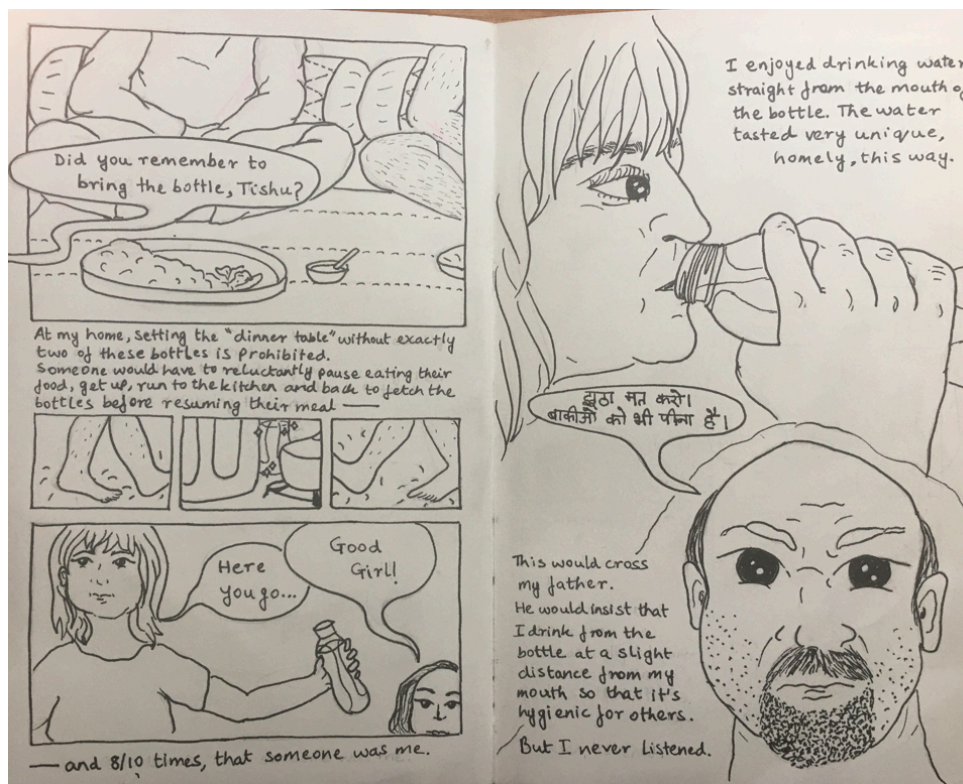 Did you remember to
bring the bottle, Tishu?
At my home, setting the "dinner table" without exactly
two of these bottles is prohibited.
Someone would have to reluctantly pause eating their
food, get up, run to the kitchen and back to fetch the
bottles before resuming their meal —
Here
you go...
Good
Girl!
— and 8/10 times, that someone was me.
I enjoyed drinking water
straight from the mouth of
the bottle. The water
tasted very unique,
homely, this way.
झूठा मत करो।
बाकीओं को भी पीना है।
This would cross
my father.
He would insist that
I drink from the
bottle at a slight
distance from my
mouth so that it's
hygienic for others.
But I never listened.